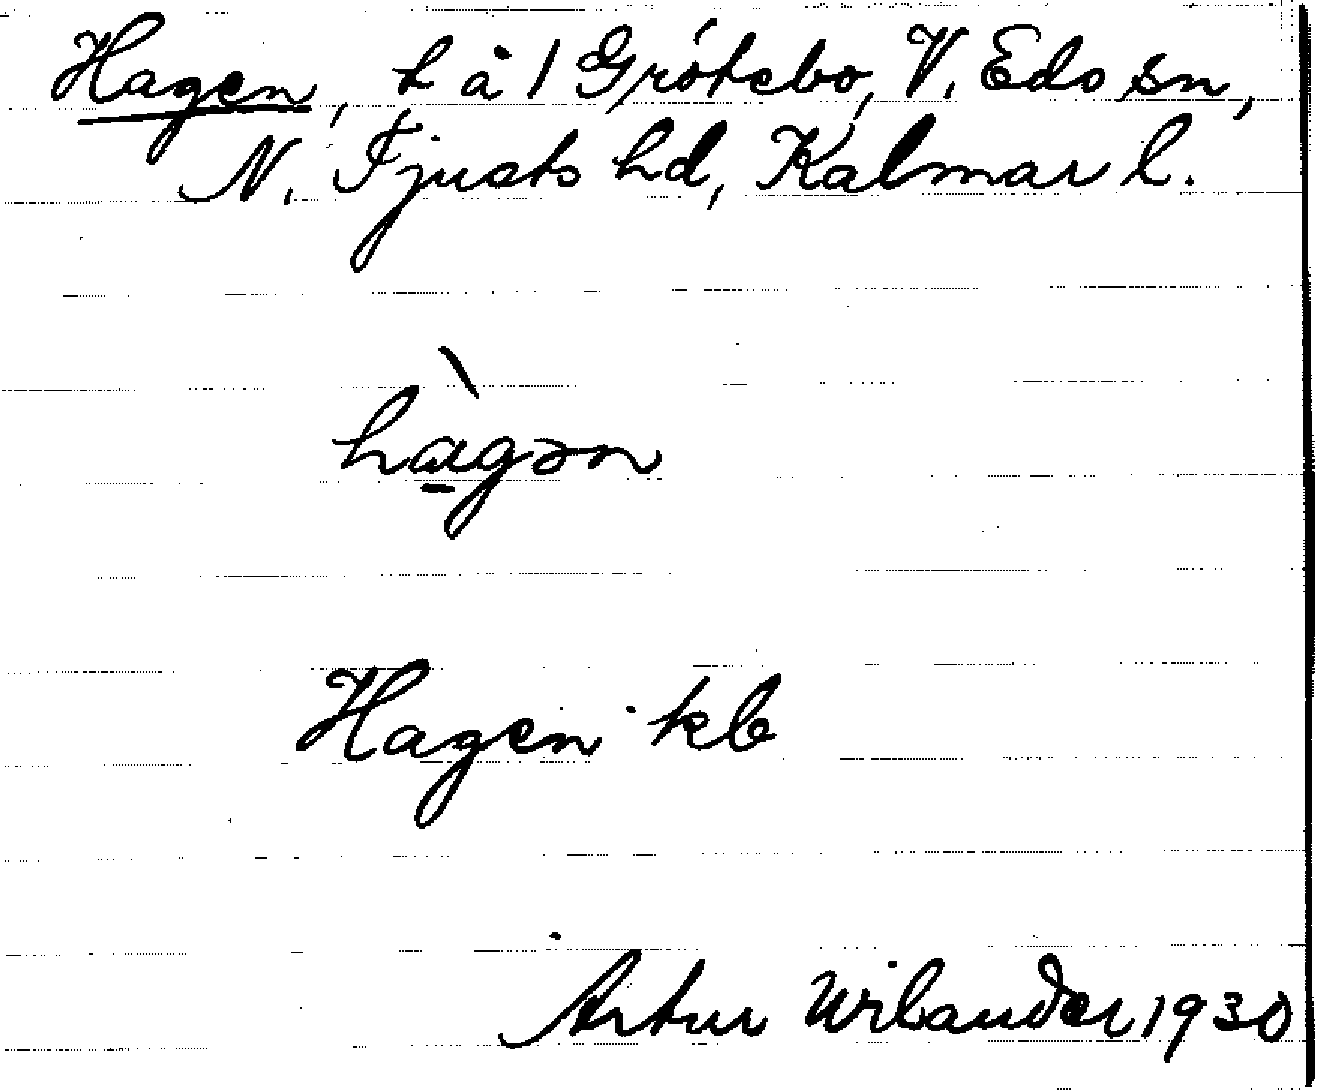 Hagen, h å 1 Grótebo, V. Eds sn,
N. Tjusts hd, Kalmar l.
hàgən
Hagen kb
Artur Wilander 1930